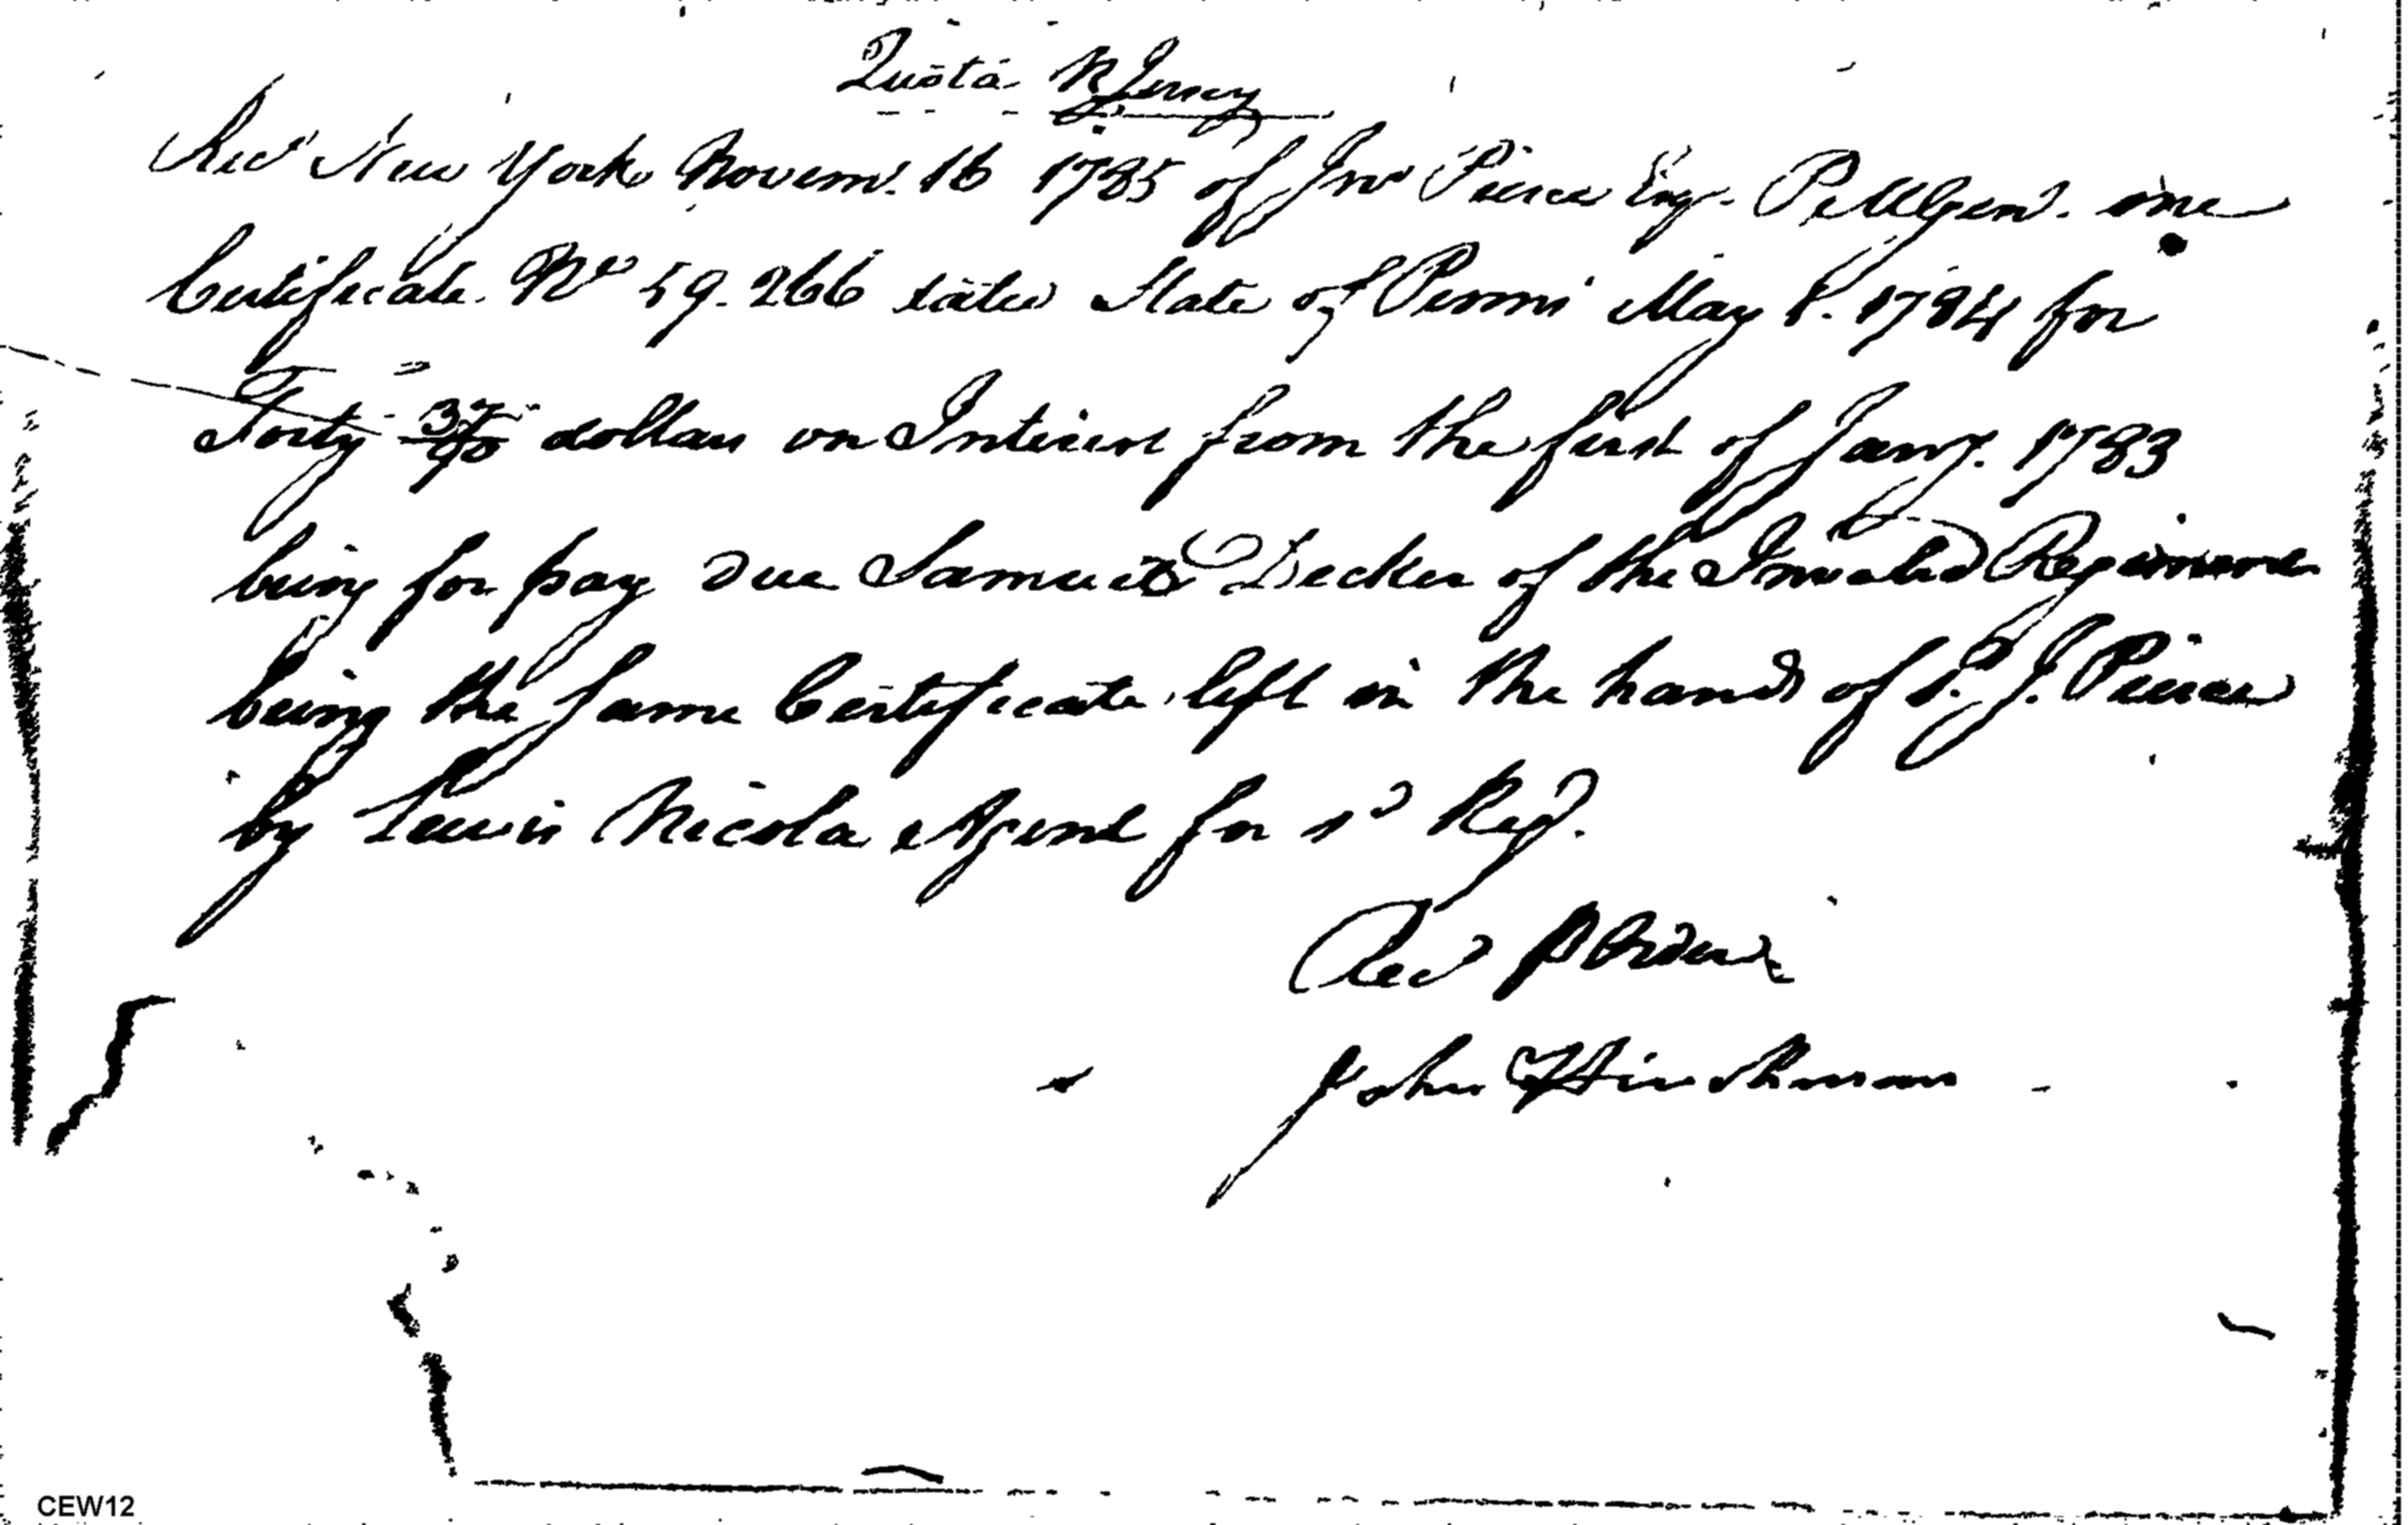 Quota N Jersey
Recd New York Novemr. 16 1785 of Jno Pierce Esqr. P M Genl. one
Certificate No 59.266 State of Penns May 1. 1784 for
Forty 37/90 dollars on Interest from the first of Jany. 1783
being for pay due Samuel Decker of the Invalid Regiment
being the same Certificate left in the hands of P. J. Pierce
by Lewis Nicola Agent for sd Regt.
Recd P Order
John Hinchman
CEW12